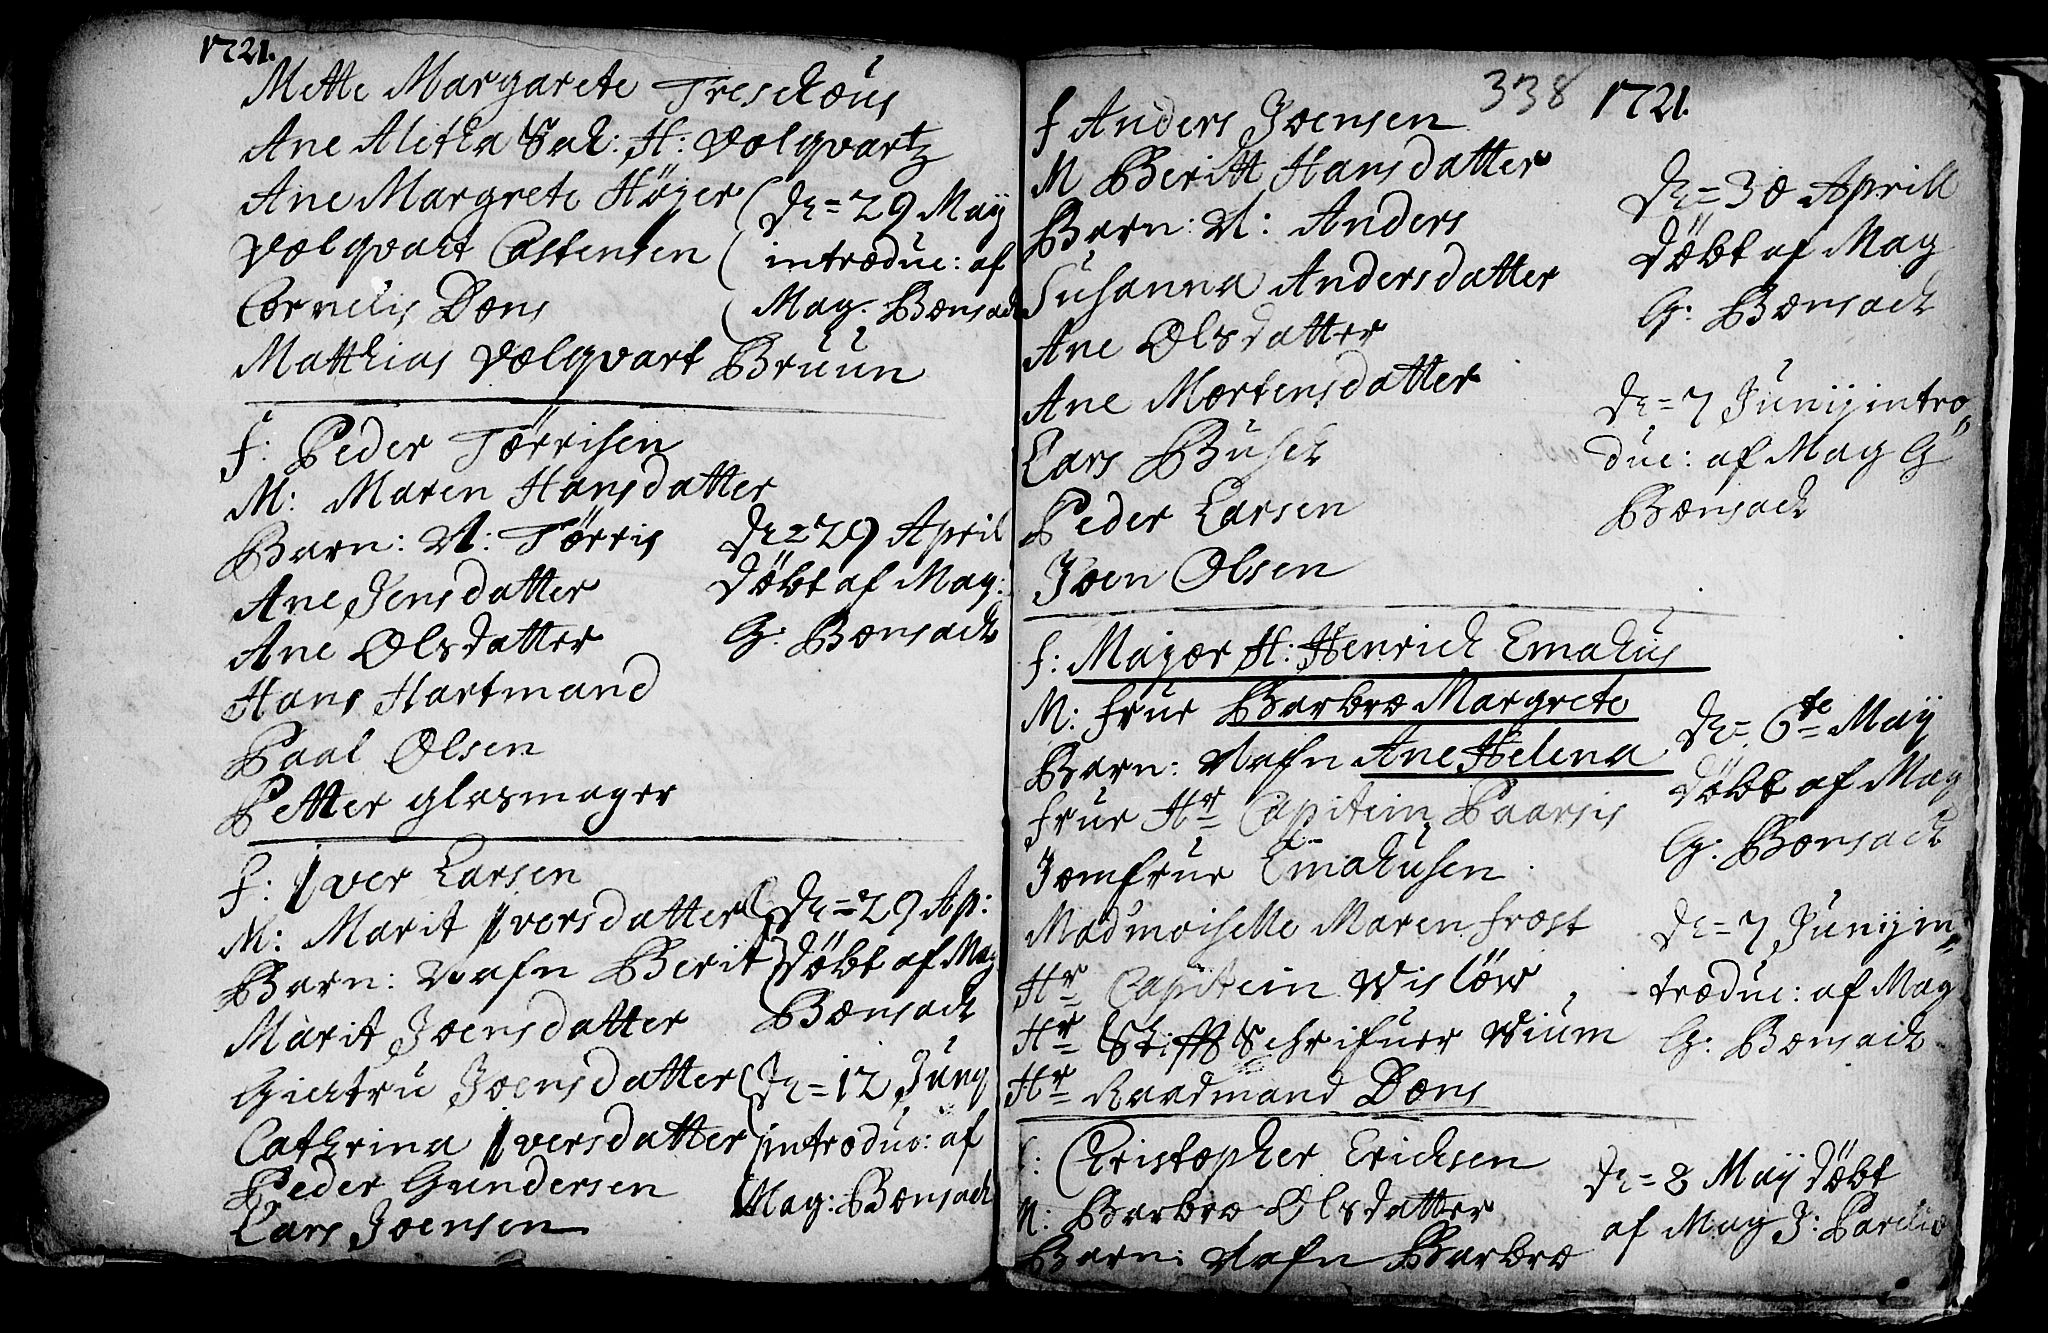 1721.
Mette Margarete Treschous
Ane Aletha Sal: H: Volqvartz
Ane Margrete Høyer
Volqvart Castensen
Cornelis Dons
Matthias Volqvart Bruun
De = 29 Maÿ
introduc: af
Mag. Bonsach
f: Peder Torrisen
M: Maren Hansdatter
Barn: N: Torris
Ane Jensdatter
Ane Olsdatter
Hans Hartmand
Paal Olsen
Petter glasmager
De = 29 April
Döbt af Mag:
G: Bonsach
f: Iver Larsen
M: Marit Iversdatter
Barn: Nafn Berit
Marit Joensdatter
Giertru Joensdatter
Cathrina Iversdatter
Peder Gundersen
Lars Joensen
De = 29 Ap:
Döbt af Mag
Bonsach
De = 12 Juny
introduc: af
Mag: Bonsach
338 1721.
f Anders Joensen
M Beritt Hansdatter
Barn: N: Anders
Susanna Andersdatter
Ane Olsdatter
Ane Mortensdatter
Lars Busch
Peder Larsen
Joen Olsen
De = 30 Aprill
Döbt af Mag
G: Bonsach
De = 7 Junÿ intro
duc: af Mag G
Bonsach
f: Major H: Henrich Emahus
M: frue Barbro Margrete
Barn: Nafn Ane Helena
frue Hr Capitein Paarsis
Jomfrue Emahusen
Madmoiselle Maren frost
Hr Capitein Wislöw
Hr Stiffts Schrifuer Wium
Hr Raadmand Dons
De = 6te Maÿ
Döbt af Mag
G: Bonsach
De = 7 Junÿ in
troduc: af Mag
G: Bonsach
f: Christopher Erichsen
M: Barbro Olsdatter
Barn: Nafn Barbro
De = 8 Maÿ Döbt
af Mag J: Parelio